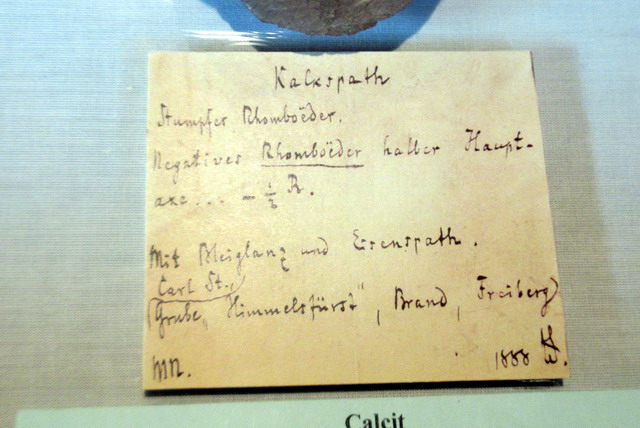 Kalkspath
Stumpfes Rhomboëder.
Negatives Rhomboëder halber Haupt-
axe... - ½ R.
Mit Bleiglanz und Eisenspath.
Carl St.,
Grube „Himmelsfürst", Brand, Freiberg
1888
Calcit